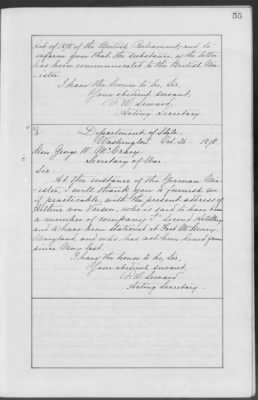 55
Act of 1878 of the British Parliament, and to
inform you that the substance of the letter
has been communicated to the British Min-
ister.
I have the honor to be, Sir,
Your obedient servant,
F. W. Seward,
Acting Secretary.
Department of State,
Washington Oct. 26 - 1878.
Hon. George W. McCrary,
Secretary of War.
Sir:
At the instance of the German Min-
ister, I will thank you to furnish me
if practicable, with the present address of
von who is said to have been
a member of company Second Artillery
and to have been stationed at Fort McHenry,
Maryland and who has not been heard from
since May last.
I have the honor to be, Sir,
Your obedient servant,
F. W. Seward
Acting Secretary.